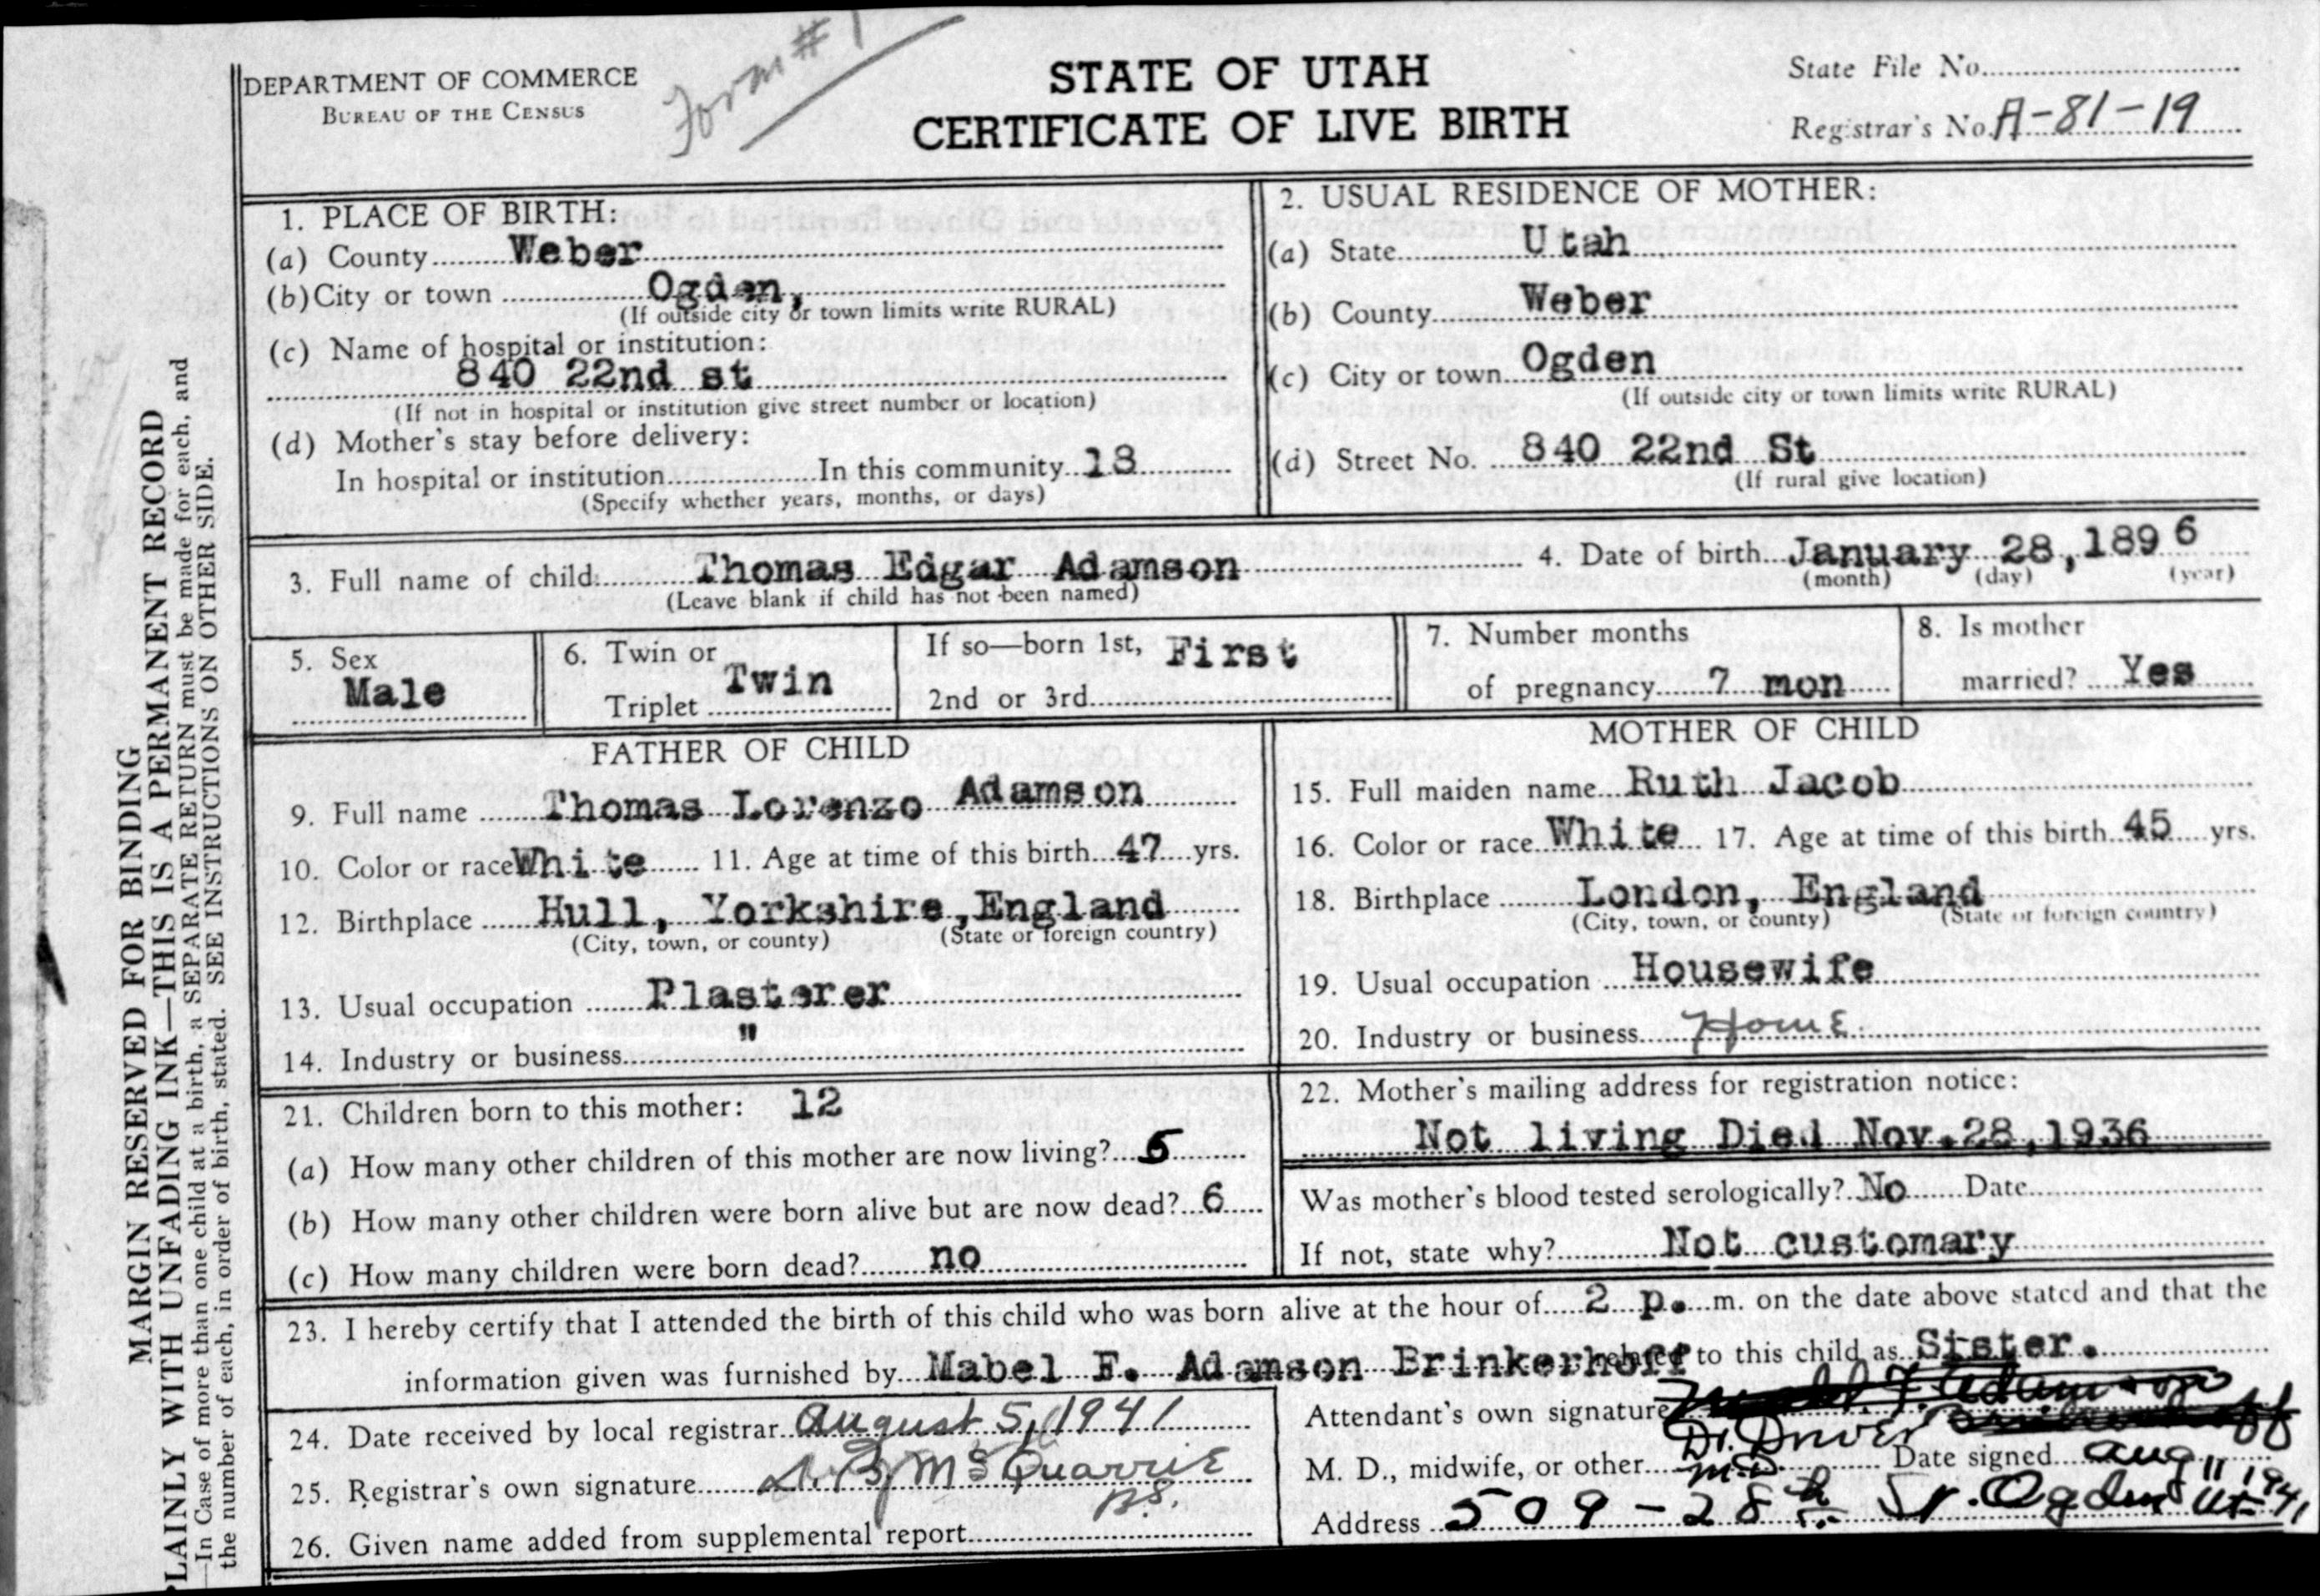 Form # 1
DEPARTMENT OF COMMERCE
BUREAU OF THE CENSUS
STATE OF UTAH
CERTIFICATE OF LIVE BIRTH
State File No.
Registrar's No. A-81-19
MARGIN RESERVED FOR BINDING
PLAINLY WITH UNFADING INK—THIS IS A PERMANENT RECORD
—In Case of more than one child at a birth, a SEPARATE RETURN must be made for each, and
the number of each, in order of birth, stated. SEE INSTRUCTIONS ON OTHER SIDE.
1. PLACE OF BIRTH:
(a) County Weber
(b) City or town Ogden,
(If outside city or town limits write RURAL)
(c) Name of hospital or institution:
840 22nd st
(If not in hospital or institution give street number or location)
(d) Mother's stay before delivery:
In hospital or institution In this community 18
(Specify whether years, months, or days)
2. USUAL RESIDENCE OF MOTHER:
(a) State Utah
(b) County Weber
(c) City or town Ogden
(If outside city or town limits write RURAL)
(d) Street No. 840 22nd St
(If rural give location)
3. Full name of child Thomas Edgar Adamson
(Leave blank if child has not been named)
4. Date of birth January 28, 1896
(month) (day) (year)
5. Sex
Male
6. Twin or
Triplet Twin
If so—born 1st, First
2nd or 3rd
7. Number months
of pregnancy 7 mon
8. Is mother
married? Yes
FATHER OF CHILD
9. Full name Thomas Lorenzo Adamson
10. Color or race White 11. Age at time of this birth 47 yrs.
12. Birthplace Hull, Yorkshire, England
(City, town, or county) (State or foreign country)
13. Usual occupation Plasterer
14. Industry or business "
MOTHER OF CHILD
15. Full maiden name Ruth Jacob
16. Color or race White 17. Age at time of this birth 45 yrs.
18. Birthplace London, England
(City, town, or county) (State or foreign country)
19. Usual occupation Housewife
20. Industry or business Home
21. Children born to this mother: 12
(a) How many other children of this mother are now living? 5
(b) How many other children were born alive but are now dead? 6
(c) How many children were born dead? no
22. Mother's mailing address for registration notice:
Not living Died Nov. 28, 1936
Was mother's blood tested serologically? No Date
If not, state why? Not customary
23. I hereby certify that I attended the birth of this child who was born alive at the hour of 2 p. m. on the date above stated and that the
information given was furnished by Mabel F. Adamson Brinkerhoff related to this child as Sister.
24. Date received by local registrar August 5, 1941
25. Registrar's own signature McQuarrie
26. Given name added from supplemental report
Attendant's own signature F. Adamson
Dr. Driver
M. D., midwife, or other M.D. Date signed Aug 11 1941
Address 509-28th St. Ogden Ut